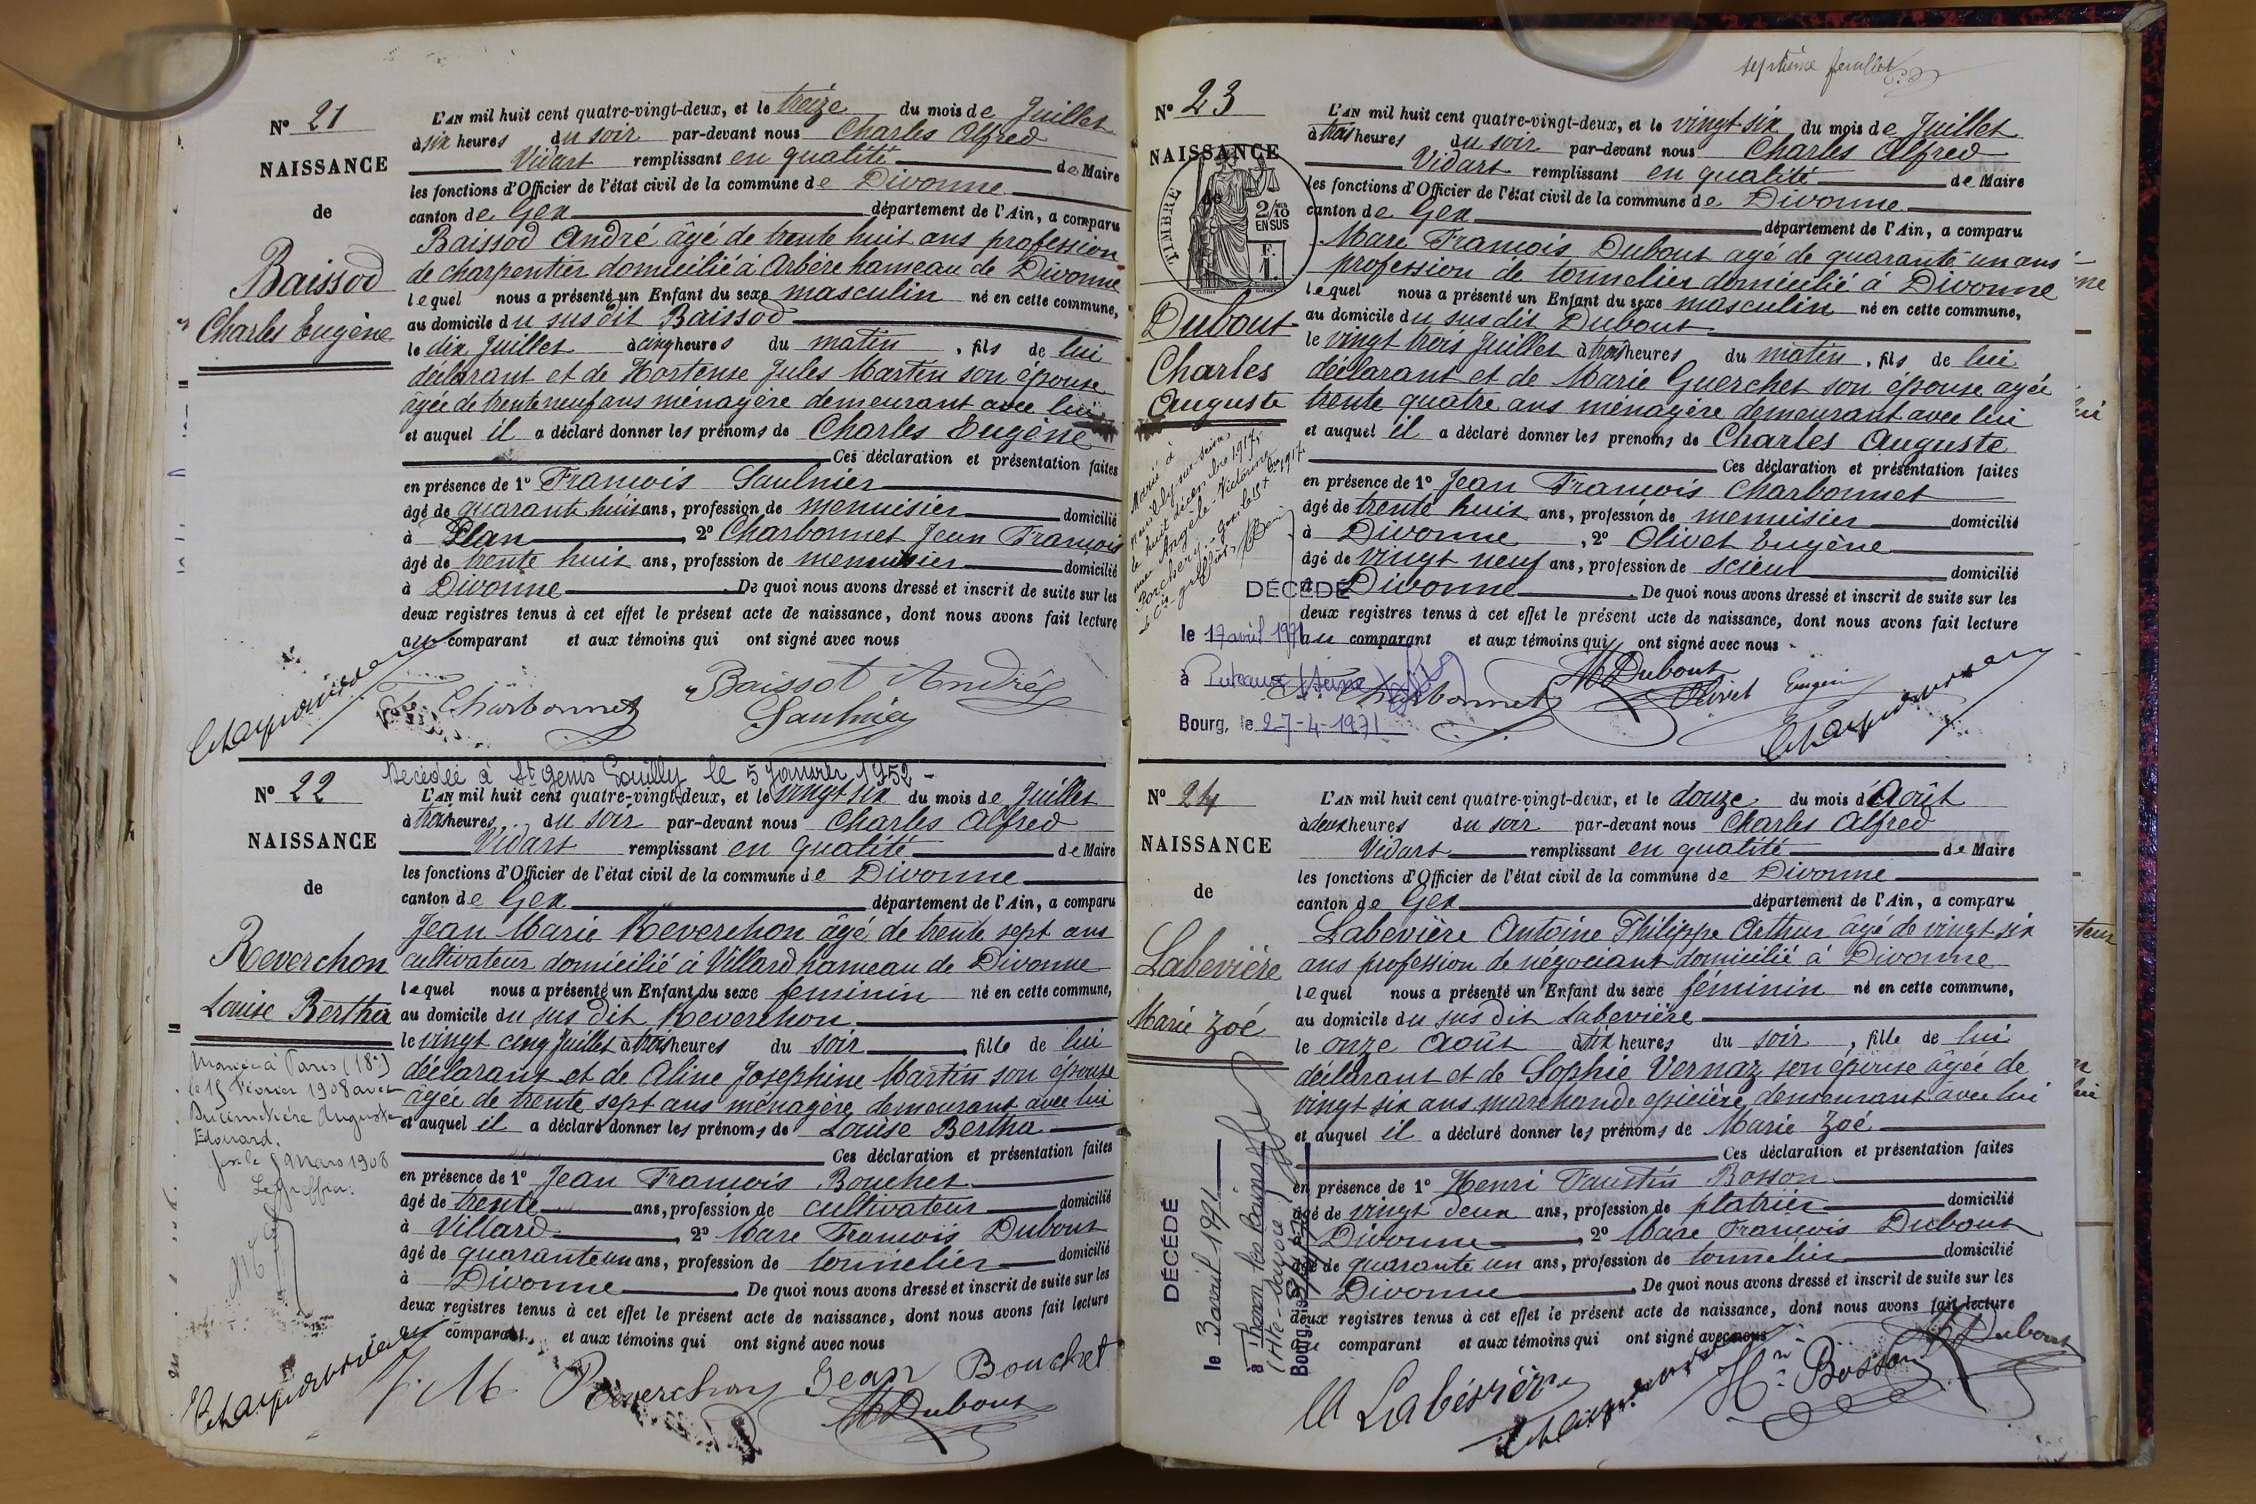 N° 21
NAISSANCE
de
Baissod
Charles Eugène
L'AN mil huit cent quatre-vingt-deux, et le treize du mois de Juillet
à six heures du soir par-devant nous Charles Alfred
Vidart remplissant en qualité de Maire
les fonctions d'Officier de l'état civil de la commune de Divonne
canton de Gex département de l'Ain, a comparu
Baissod André âgé de trente huit ans profession
de charpentier domicilié à Arbère hameau de Divonne
lequel nous a présenté un Enfant du sexe masculin né en cette commune,
au domicile du sus dit Baissod
le dix Juillet à cinq heures du matin, fils de lui
déclarant et de Hortense Jules Martin son épouse
âgée de trente neuf ans ménagère demeurant avec lui
et auquel il a déclaré donner les prénoms de Charles Eugène
Ces déclaration et présentation faites
en présence de 1° François Saulnier
âgé de quarante huit ans, profession de menuisier domicilié
à Plan, 2° Charbonnet Jean François
âgé de trente huit ans, profession de menuisier domicilié
à Divonne. De quoi nous avons dressé et inscrit de suite sur les
deux registres tenus à cet effet le présent acte de naissance, dont nous avons fait lecture
au comparant et aux témoins qui ont signé avec nous
Charbonnet
Baissot André
Saulnier
Décédée à St Genis Pouilly le 5 Janvier 1952 -
N° 22
NAISSANCE
de
Reverchon
Louise Bertha
Mariée à Paris (18e)
le 15 Février 1908 avec
Auguste
Edouard.
Gex le 9 Mars 1908
Le greffier:
L'AN mil huit cent quatre-vingt-deux, et le vingt six du mois de Juillet
à trois heures du soir par-devant nous Charles Alfred
Vidart remplissant en qualité de Maire
les fonctions d'Officier de l'état civil de la commune de Divonne
canton de Gex département de l'Ain, a comparu
Jean Marie Reverchon âgé de trente sept ans
cultivateur domicilié à Villard hameau de Divonne
lequel nous a présenté un Enfant du sexe féminin né en cette commune,
au domicile du sus dit Reverchon
le vingt cinq Juillet à trois heures du soir, fille de lui
déclarant et de Aline Josephine Martin son épouse
âgée de trente sept ans ménagère demeurant avec lui
et auquel il a déclaré donner les prénoms de Louise Bertha
Ces déclaration et présentation faites
en présence de 1° Jean François Bouchet
âgé de trente ans, profession de cultivateur domicilié
à Villard, 2° Marc François Dubout
âgé de quarante un ans, profession de tonnelier domicilié
à Divonne. De quoi nous avons dressé et inscrit de suite sur les
deux registres tenus à cet effet le présent acte de naissance, dont nous avons fait lecture
au comparant et aux témoins qui ont signé avec nous
J. M. Reverchon Jean Bouchet
M Dubout
septième feuillet
N° 23
NAISSANCE
de
TIMBRE
2/10
EN SUS
F.
1.
Dubout
Charles
Auguste
Marié à
Neuilly-sur-Seine
le huit décembre 1917
avec Angèle Victorine
Porchery
DÉCÉDÉ
le 17 avril 1971
à Puteaux
Bourg, le 27-4-1971
L'AN mil huit cent quatre-vingt-deux, et le vingt six du mois de Juillet
à trois heures du soir par-devant nous Charles Alfred
Vidart remplissant en qualité de Maire
les fonctions d'Officier de l'état civil de la commune de Divonne
canton de Gex département de l'Ain, a comparu
Marc François Dubout agé de quarante un ans
profession de tonnelier domicilié à Divonne
lequel nous a présenté un Enfant du sexe masculin né en cette commune,
au domicile du sus dit Dubout
le vingt trois Juillet à trois heures du matin, fils de lui
déclarant et de Marie Guerchet son épouse agée
trente quatre ans ménagère demeurant avec lui
et auquel il a déclaré donner les prénoms de Charles Auguste
Ces déclaration et présentation faites
en présence de 1° Jean François Charbonnet
âgé de trente huit ans, profession de menuisier domicilié
à Divonne, 2° Olivet Eugène
âgé de vingt neuf ans, profession de scieur domicilié
à Divonne. De quoi nous avons dressé et inscrit de suite sur les
deux registres tenus à cet effet le présent acte de naissance, dont nous avons fait lecture
au comparant et aux témoins qui ont signé avec nous
M Dubout
Charbonnet Olivet Eugène
N° 24
NAISSANCE
de
Labevière
Marie Zoé
DÉCÉDÉ
le 3 avril 1971
à Thonon les bains
(Hte-Savoie)
Bourg, le
L'AN mil huit cent quatre-vingt-deux, et le douze du mois d'Août
à deux heures du soir par-devant nous Charles Alfred
Vidart remplissant en qualité de Maire
les fonctions d'Officier de l'état civil de la commune de Divonne
canton de Gex département de l'Ain, a comparu
Labevière Antoine Philippe Arthur âgé de vingt six
ans profession de négociant domicilié à Divonne
lequel nous a présenté un Enfant du sexe féminin né en cette commune,
au domicile du sus dit Labevière
le onze Août à six heures du soir, fille de lui
déclarant et de Sophie Vernaz son épouse âgée de
vingt six ans marchande epicière demeurant avec lui
et auquel il a déclaré donner les prénoms de Marie Zoé
Ces déclaration et présentation faites
en présence de 1° Henri Faustin Bosson
âgé de vingt deux ans, profession de platrier domicilié
Divonne, 2° Marc François Dubout
âgé de quarante un ans, profession de tonnelier domicilié
Divonne. De quoi nous avons dressé et inscrit de suite sur les
deux registres tenus à cet effet le présent acte de naissance, dont nous avons fait lecture
au comparant et aux témoins qui ont signé avec nous
M Dubout
Labévière Hri Bosson